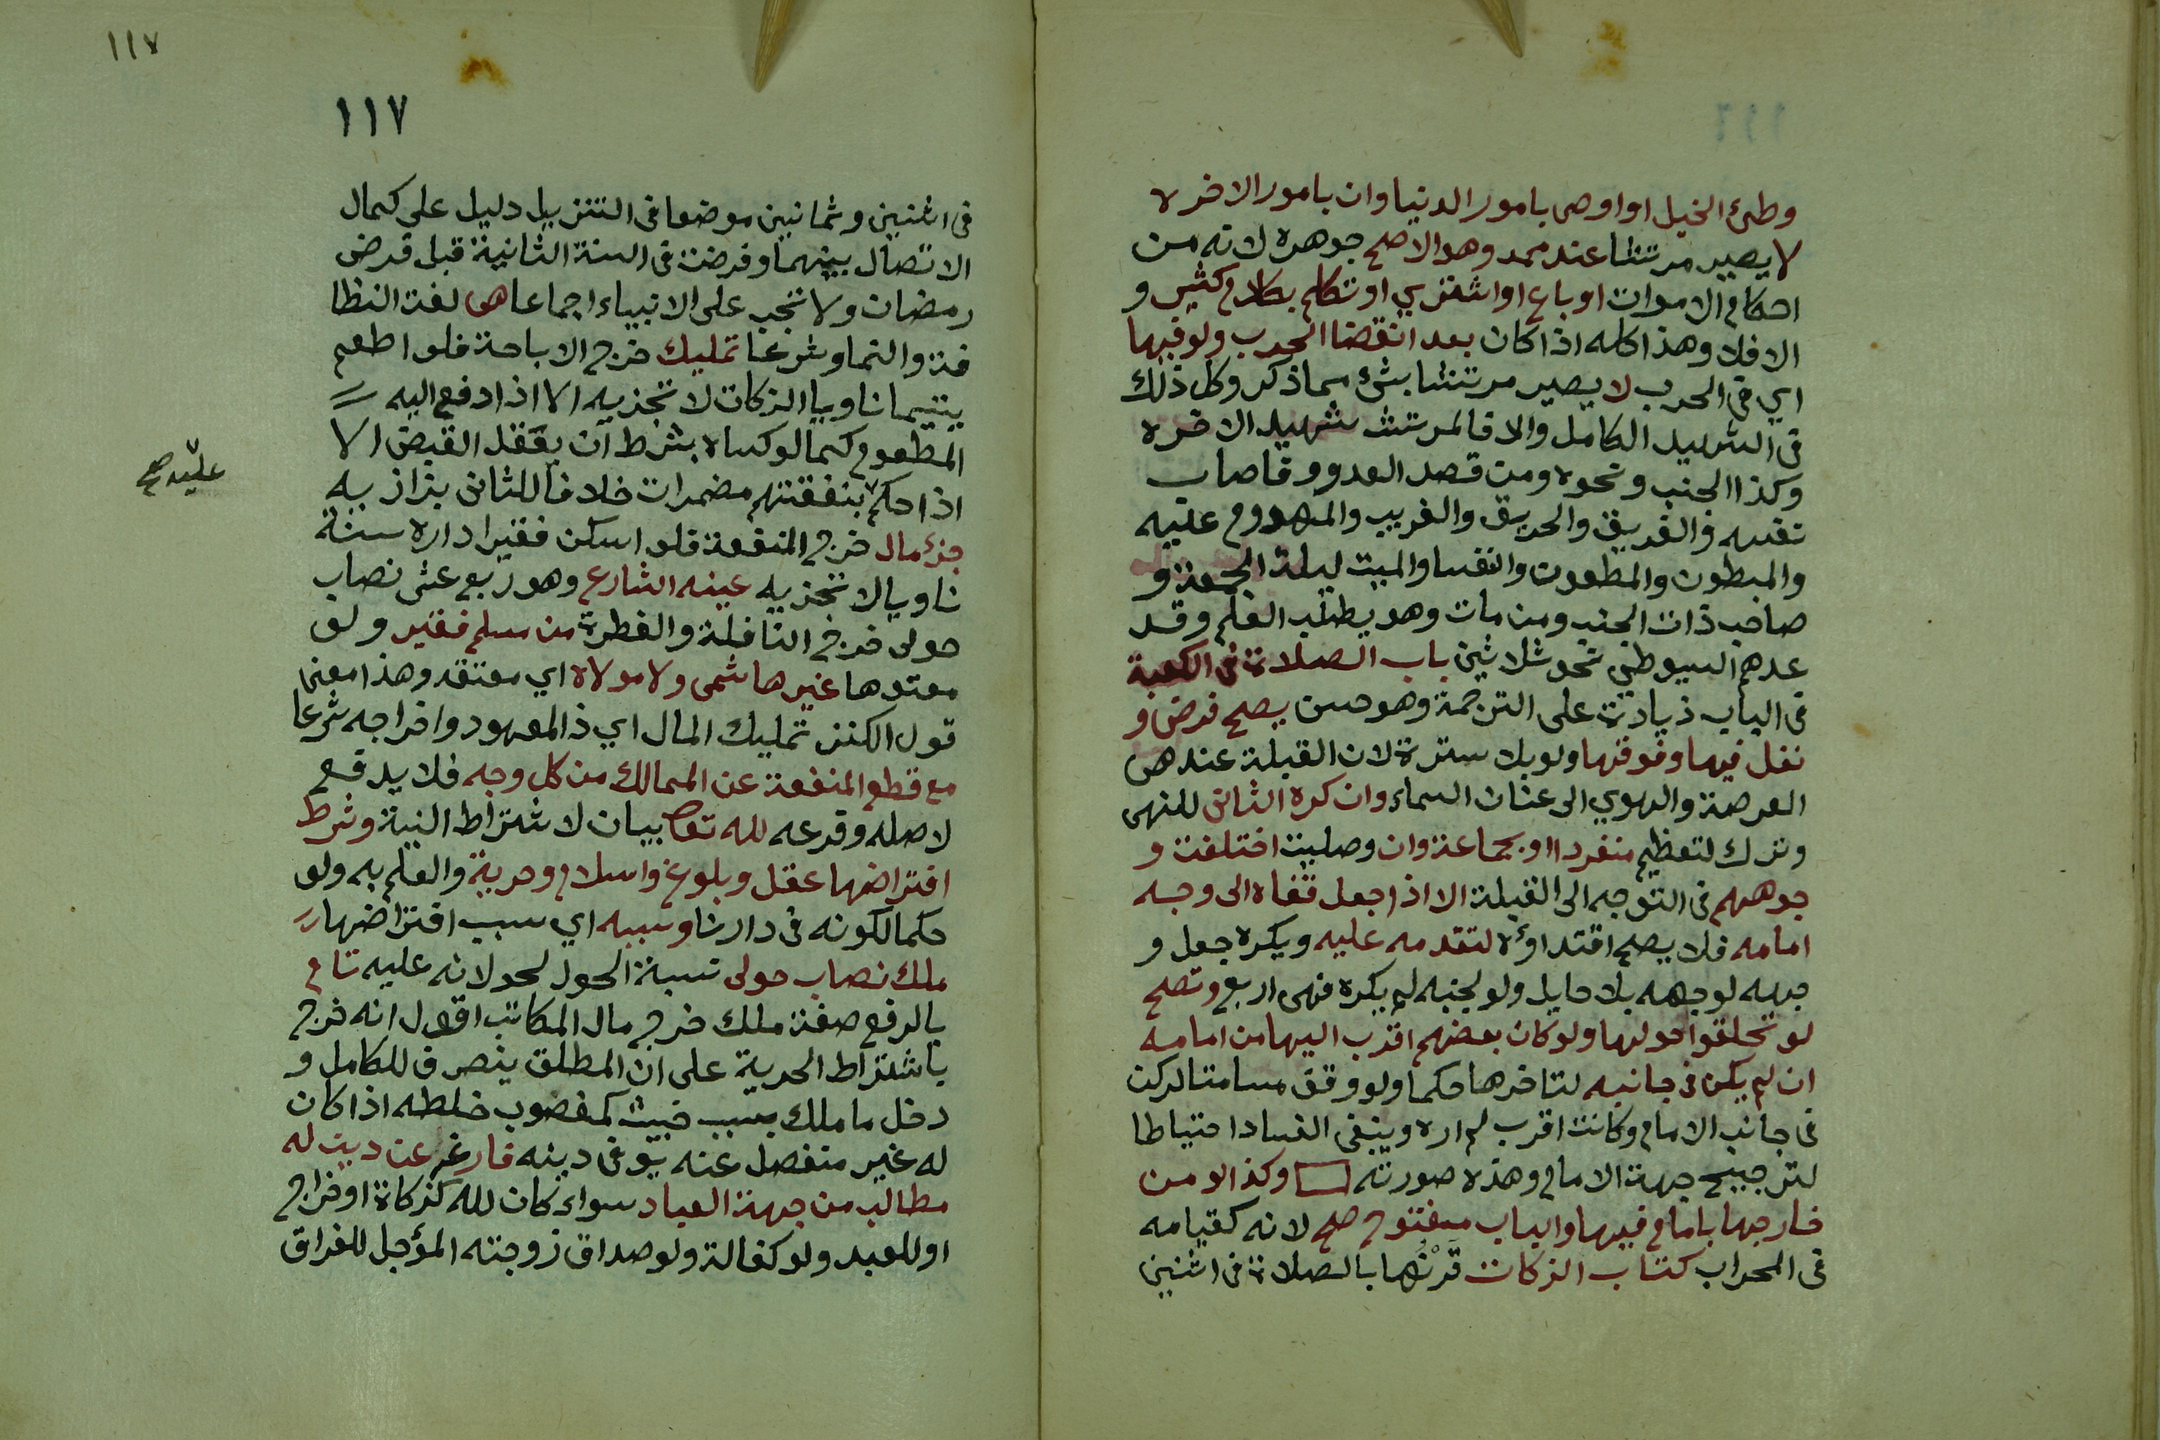 وطئ الخيل او اوصى بامور الدنيا وان بامور الاخرة
لا يصير مرتثا عند محمد وهو الاصح جوهره لانه من
احكام الاموات او باع او اشترى او تكلم بكلام كثير و
الا فلا وهذا كله اذا كان بعد انقضا الحرب ولو فيها
اي في الحرب لا يصير مرتثا بشئ مما ذكر وكل ذلك
في الشهيد الكامل والا فالمرتث شهيد الاخرة
وكذا الجنب ونحوه ومن قصد العدو وفاصاب
نفسه والغريق والحريق والغريب والمهدوم عليه
والمبطون والمطعون والنفسا والميت ليلة الجمعة و
صاحب ذات الجنب ومن مات وهو يطلب العلم وقد
عدهم السيوطي نحو ثلاثين باب الصلاة في الكعبة
في الباب زيادة على الترجمة وهو حسن يصح فرض و
نفل فيها وفوقها ولو بلا سترة لان القبلة عندهى
العرصة والهوي الى عنان السماء وان كره الثاني للنهى
وترك لتعظيم منفردا او بجماعة وان وصليت اختلفت و
جوههم في التوجه الى القبلة الا اذا جعل قفاه الى وجه
امامه فلا يصح اقتداؤه لتقدمه عليه ويكره جعل و
جهه لوجهه بلا حايل ولو لجنبه لم يكره فهى اربع وتصح
لو تحلقوا حولها ولو كان بعضهم اقرب اليها من امامه
ان لم يكن في جانبه لتاخرها حكما ولو وقف مسامتا لركن
في جانب الامام وكانت اقرب لم اره وينبغى الفساد احتياطا
لترجيح جهة الامام وهذه صورته وكذا لو من
خارجها بامام فيها والباب مفتوح صح لانه كقيامه
في المحراب كتاب الزكات قرنها بالصلاة في اثنين
١١٧
١١٧
في اثنين وثمانين موضعا في التنزيل دليل على كمال
الاتصال بينهما وفرضت في السنة الثانية قبل فرض
رمضان ولا تجب على الانبياء اجماعا هى لغة النظا
فة والنما وشرعا تمليك خرج الاباحة فلو اطعم
يتيما ناويا الزكات لا تجزيه الا اذا دفع اليه
المطعوم كما لو كساه بشرط ان يعقل القبض الا
اذا حكم بنفقتهم مضمرات خلافا للثانى بزازيه
عليه صح
جزء مال خرج المنفعة فلو اسكن فقيرا داره سنة
ناويا لا تجزيه عينه الشارع وهو ربع عشر نصاب
حولى خرج النافلة والفطرة من مسلم فقير ولو
معتوها غير هاشمى ولا مولاه اي معتقه وهذا معنى
قول الكنز تمليك المال اي ذ المعهود واخراجه شرعا
مع قطع المنفعة عن المملك من كل وجه فلا يدفع
لاصله وفرعه لله تعا بيان لاشتراط النية وشرط
افتراضها عقل وبلوغ واسلام وحرية والعلم به ولو
حكما لكونه في دارنا وسببه اي سبب افتراضها
ملك نصاب حولى نسبة الحول لحولانه عليه تام
بالرفع صفة ملك خرج مال المكاتب اقول انه خرج
باشتراط الحرية على ان المطلق ينصرف للكامل و
دخل ما ملك بسبب خبيث كمغصوب خلطه اذا كان
له غير منفصل عنه يوفى دينه فارغ عن دين له
مطالب من جهة العباد سواء كان لله كزكاة او خراج
او للعبد ولو كفالة ولو صداق زوجته المؤجل للفراق